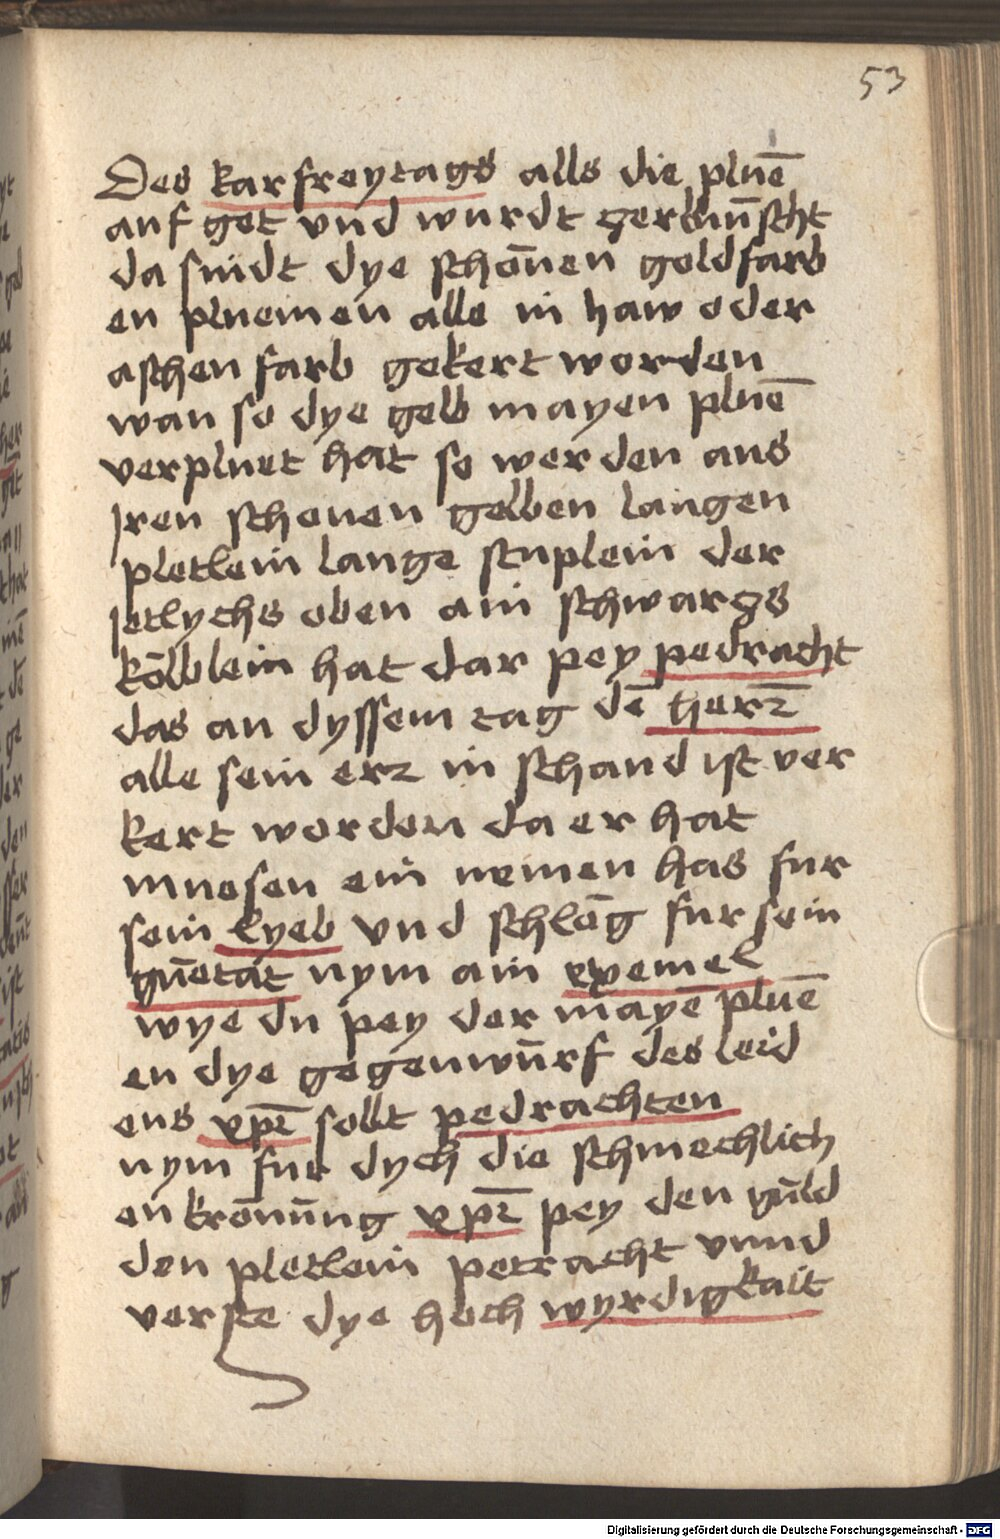 53
Des karfreytags alls die pluē
auf get vnd wurdt zerknūscht
da sindt dye schōnen goldfarb
en pluemen alle in haw oder
aschen farb gekert worden
wan so dye gelb mayen pluē
verpluet hat so werden aus
Iren schenen gelben langen
pletlein lange stuplein der
Jetlychs oben ain schwarczs
kōlblein hat dar pey pedracht
das an dyssem tag dē herrn
alle sein erz in schand ist ver
kert worden da er hat
muesen ein nemen has fur
sein lyeb vnd schlōg fur sein
guētat nym ain exemel
wye du pey der mayē pluē
en dye gegenwūrf des leid
ens xpī sollt pedrachten
nym fur dych die schmechlich
en krōnūng xpī pey den gūld
den pletlein petracht vnnd
verste dye hoch wyrdigkait
Digitalisierung gefördert durch die Deutsche Forschungsgemeinschaft - DFG